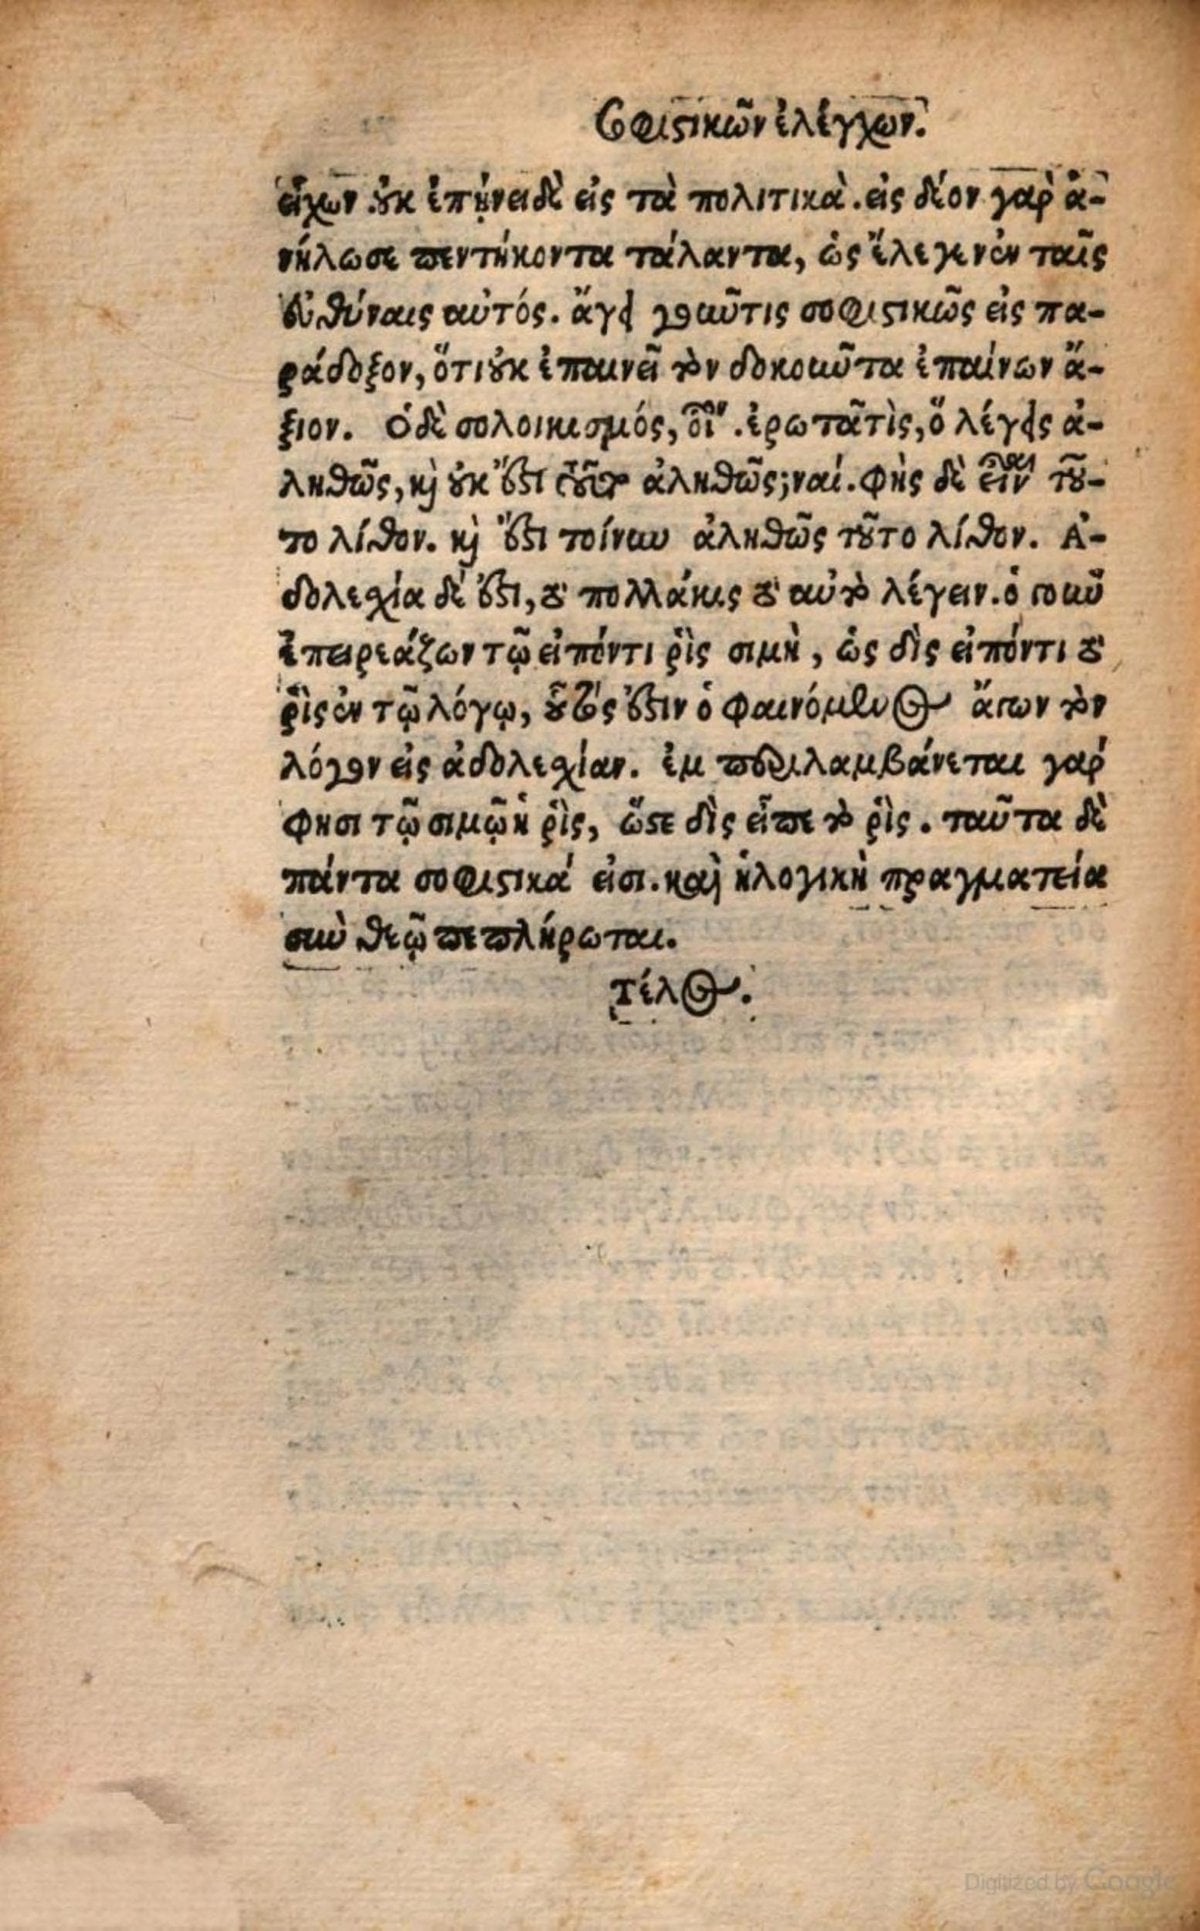 Σοφιστικῶν ἐλέγχων.
εἶχον. οὐκ ἐπῄνει δὲ εἰς τὰ πολιτικὰ. εἰς δέον γαρ ἀ-
νήλωσε πεντήκοντα τάλαντα, ὡς ἔλεγεν ἐν ταῖς
εὐθύναις αὐτός. ἄγει γοῦν τις σοφιστικῶς εἰς πα-
ράδοξον, ὅτι οὐκ ἐπαινεῖ τὸν δοκοῦντα ἐπαίνων ἄ-
ξιον. Ὁ δὲ σολοικισμός, οἷον. ἐρωτᾶ τὶς, ὅ λέγεις ἀ-
ληθῶς, καὶ οὐκ ἔστι τοῦτο ἀληθῶς; ναί. φῂς δὲ εἶναι τοῦ-
το λίθον. καὶ ἔστι τοίνυν ἀληθῶς τοῦτο λίθον. Ἀ-
δολεσχία δέ ἐστι, τὸ πολλάκις τὸ αὐτὸ λέγειν. ὁ γοῦν
ἐπειρεάζων τῷ εἰπόντι ῥὶς σιμὴ, ὡς δὶς εἰπόντι τὸ
ῥὶς ἐν τῷ λόγῳ, οὗτός ἐστιν ὁ φαινόμενος ἄγων τὸν
λόγον εἰς ἀδολεσχίαν. ἐμ περιλαμβάνεται γάρ
φησι τῷ σιμῷ ἡ ῥὶς, ὥστε δὶς εἶπε τὸ ῥὶς. ταῦτα δὲ
πάντα σοφιστικά εἰσι. καὶ ἡ λογικὴ πραγματεία
σὺν θεῷ πεπλήρωται.
Τέλος.
Digitized by Google